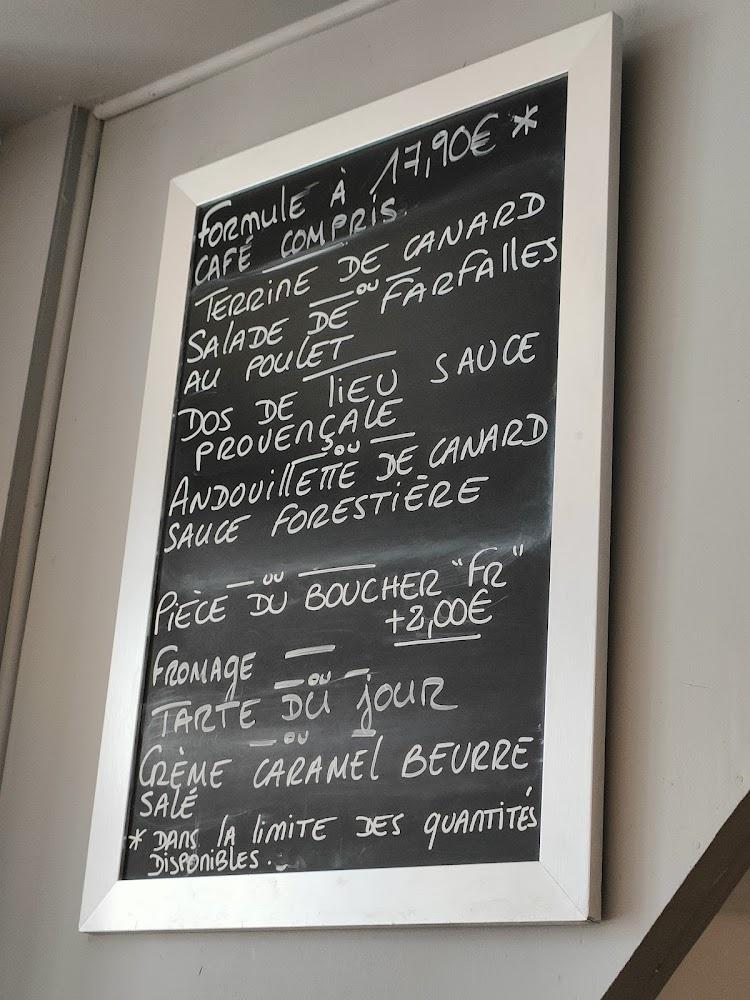 FORMULE À 17,90€ *
CAFÉ COMPRIS.
TERRINE DE CANARD
— ou —
SALADE DE FARFALLES
AU POULET
DOS DE LIEU SAUCE
PROVENÇALE
— ou —
ANDOUILLETTE DE CANARD
SAUCE FORESTIÈRE
— ou —
PIÈCE DU BOUCHER "FR"
+2,00€
FROMAGE
— ou —
TARTE DU JOUR
— ou —
CRÈME CARAMEL BEURRE
SALÉ
* DANS LA LIMITE DES QUANTITÉS
DISPONIBLES.